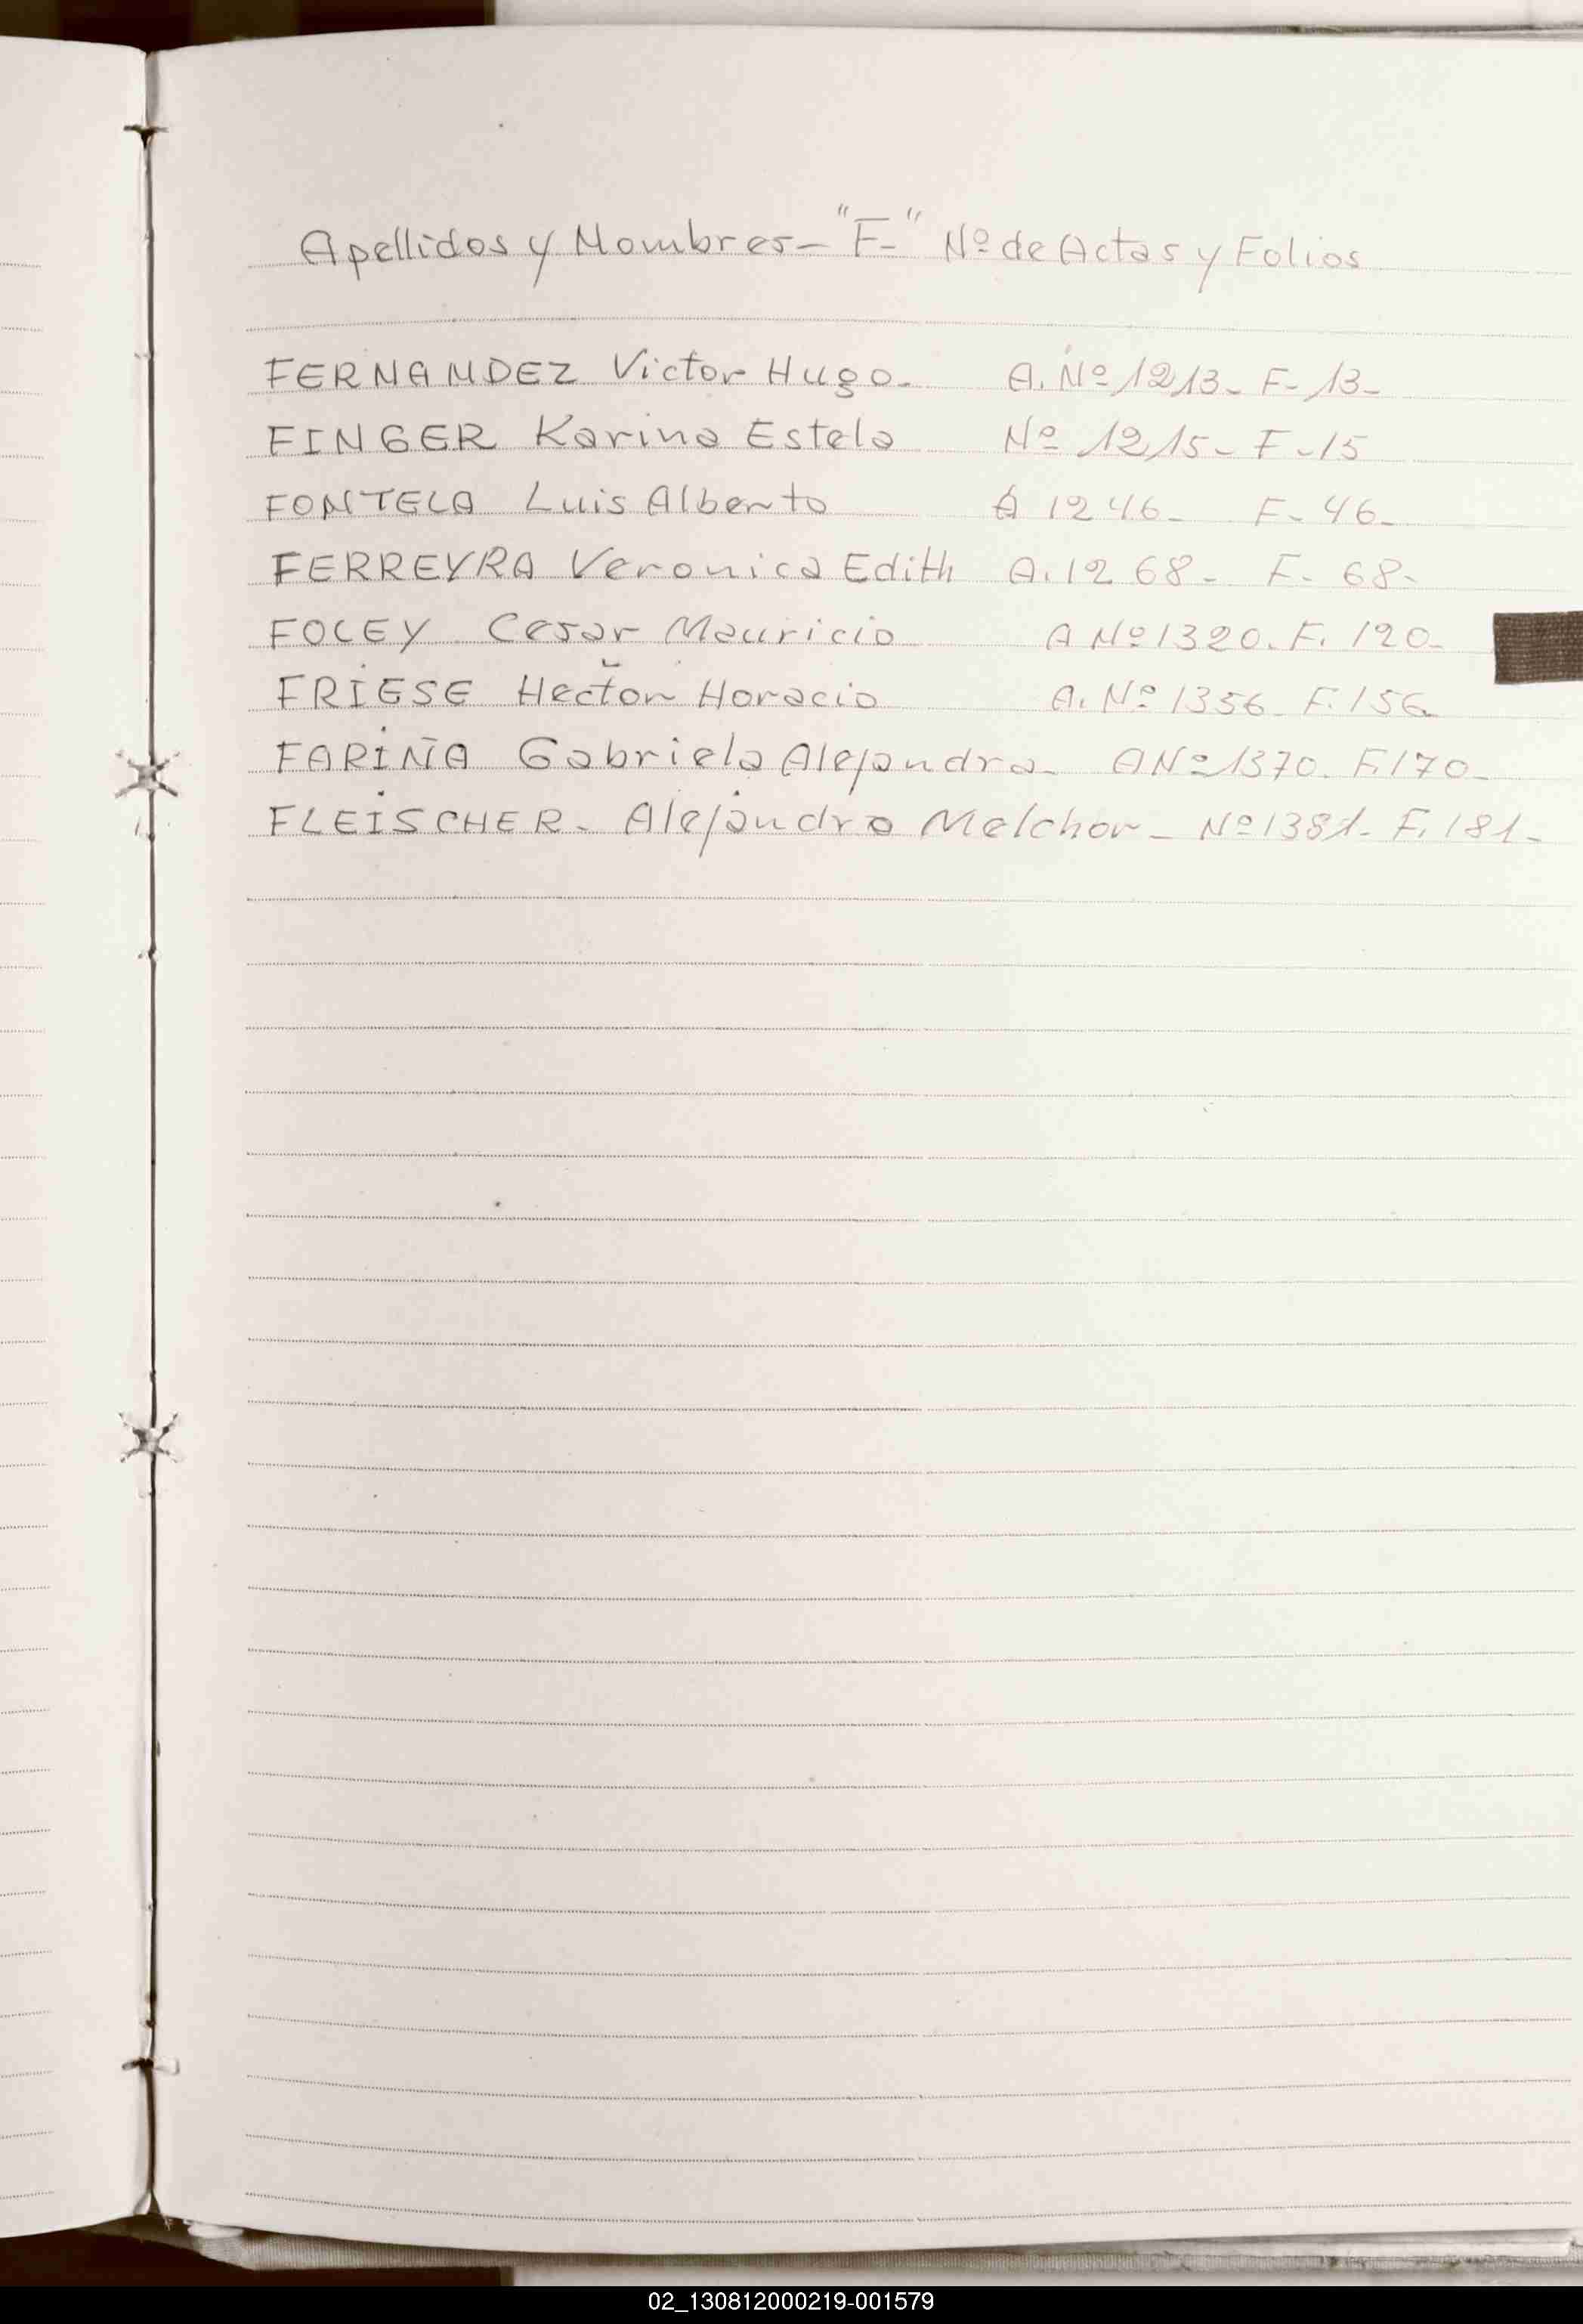 Apellidos y Nombres- "F-" Nº de Actas y Folios
FERNANDEZ Victor Hugo. A. Nº 1213- F- 13-
FINGER Karina Estela Nº 1215- F-15
FONTELA Luis Alberto A 1246- F- 46-
FERREYRA Veronica Edith A. 1268- F- 68-
FOLEY Cesar Mauricio A Nº 1320. F. 120-
FRIESE Hector Horacio A. Nº 1356- F. 156
FARIÑA Gabriela Alejandra- A Nº 1370. F. 170-
FLEISCHER- Alejandro Melchor- Nº 1381- F. 181-
02_130812000219-001579